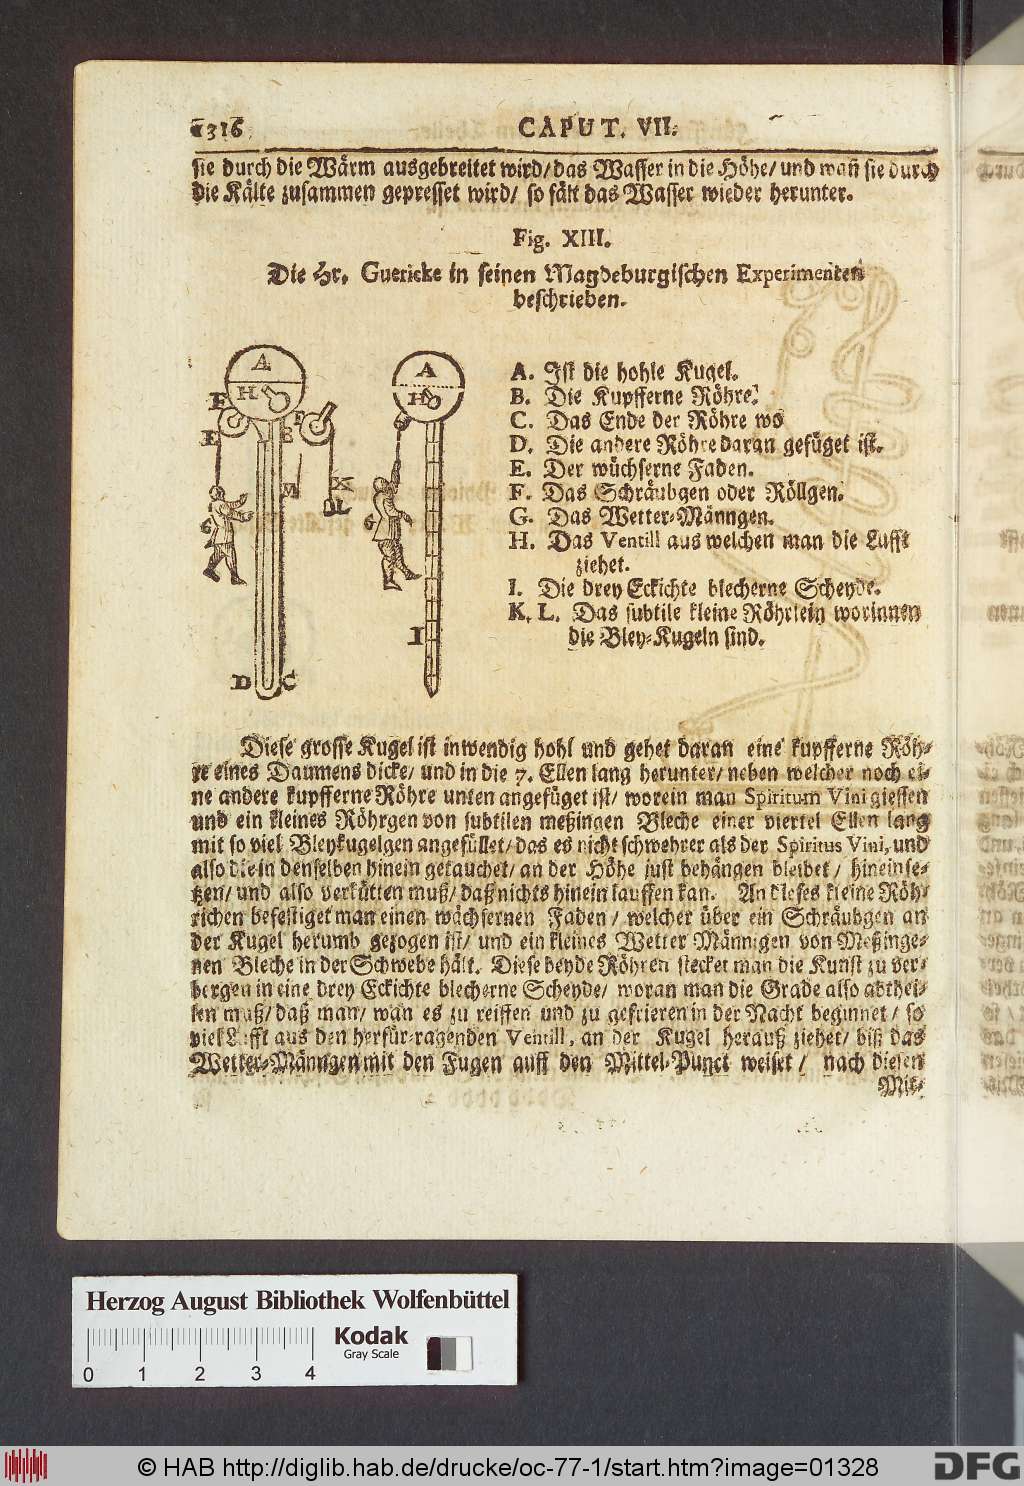 1316 CAPUT. VII.
sie durch die Wärm ausgebreitet wird/ das Wasser in die Höhe/ und wañ sie durch
die Kälte zusammen gepresset wird/ so fält das Wasser wieder herunter.
Fig. XIII.
Die Hr. Guericke in seinen Magdeburgischen Experimenten
beschrieben.
A. Ist die hohle Kugel.
B. Die Kupfferne Röhre.
C. Das Ende der Röhre wo
D. Die andere Röhre daran gefüget ist.
E. Der wüchserne Faden.
F. Das Schräubgen oder Röllgen.
G. Das Wetter-Männgen.
H. Das Ventill aus welchen man die Lufft
ziehet.
I. Die drey Eckichte blecherne Scheyde.
K. L. Das subtile kleine Röhrlein worinnen
die Bley-Kugeln sind.
A
H
F
E
G
B
F
M
K
L
D
C
A
H
G
I
Diese grosse Kugel ist inwendig hohl und gehet daran eine kupfferne Röh-
re eines Daumens dicke/ und in die 7. Ellen lang herunter/ neben welcher noch ei-
ne andere kupfferne Röhre unten angefüget ist/ worein man Spiritum Vini giessen
und ein kleines Röhrgen von subtilen meßingen Bleche einer viertel Ellen lang
mit so viel Bleykugelgen angefüllet/ das es nicht schwehrer als der Spiritus Vini, und
also die in denselben hinein getauchet/ an der Höhe just behängen bleibet/ hineinse-
tzen/ und also verkütten muß/ daß nichts hinein lauffen kan. An dieses kleine Röh-
richen befestiget man einen wächsernen Faden/ welcher über ein Schräubgen an
der Kugel herumb gezogen ist/ und ein kleines Wetter Männigen von Meßinge-
nen Bleche in der Schwebe hält. Diese beyde Röhren stecket man die Kunst zu ver-
bergen in eine drey Eckichte blecherne Scheyde/ woran man die Grade also abthei-
len muß/ daß man/ wan es zu reiffen und zu gefrieren in der Nacht beginnet/ so
viel Lufft aus den herfür-ragenden Ventill, an der Kugel herauß ziehet/ biß das
Wetter-Männgen mit den Fugen auff den Mittel-Punct weiset/ nach diesen
Mit-
Herzog August Bibliothek Wolfenbüttel
Kodak
Gray Scale
0 1 2 3 4
© HAB http://diglib.hab.de/drucke/oc-77-1/start.htm?image=01328
DFG